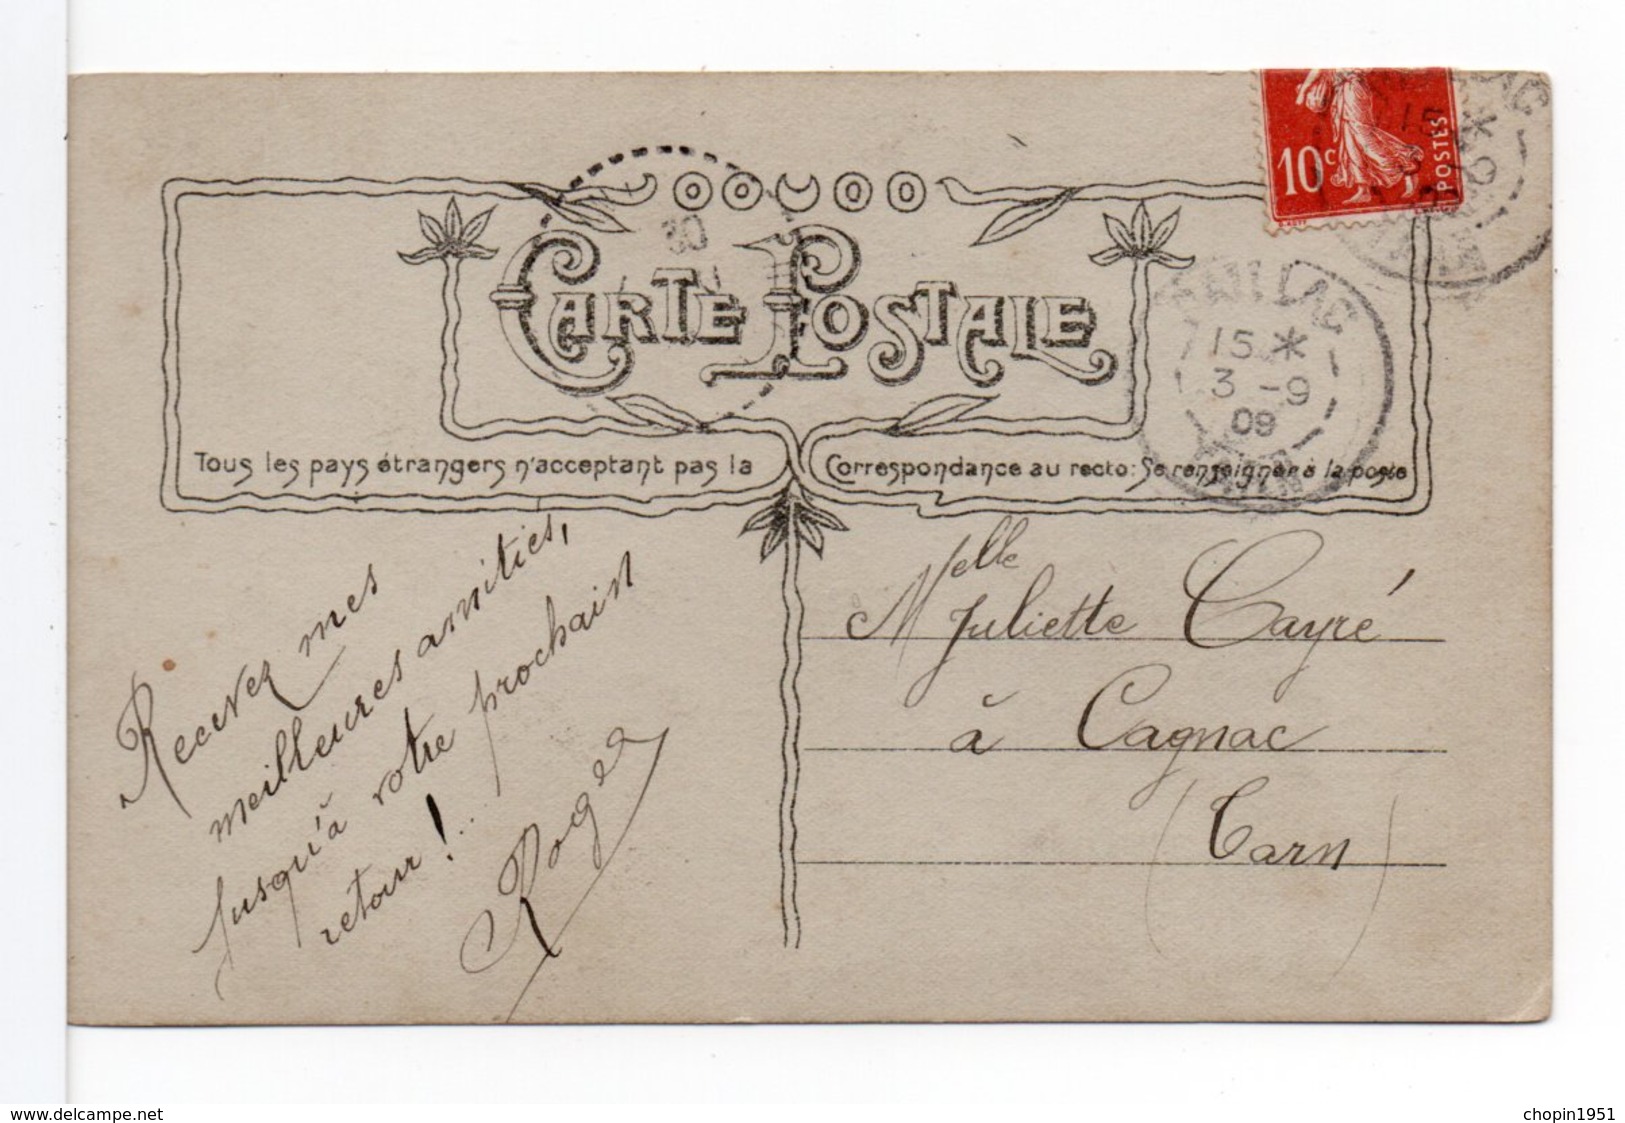 10c
POSTES
CARTE POSTALE
30
15 *
3 -9
09
Tous les pays étrangers n'acceptant pas la Correspondance au recto: Se renseigner à la poste
Recevez mes
meilleures amitiés,
Jusqu'à votre prochain
retour!..
Roger
Melle Juliette Cayré
à Cagnac
(Tarn)
www.delcampe.net
chopin1951